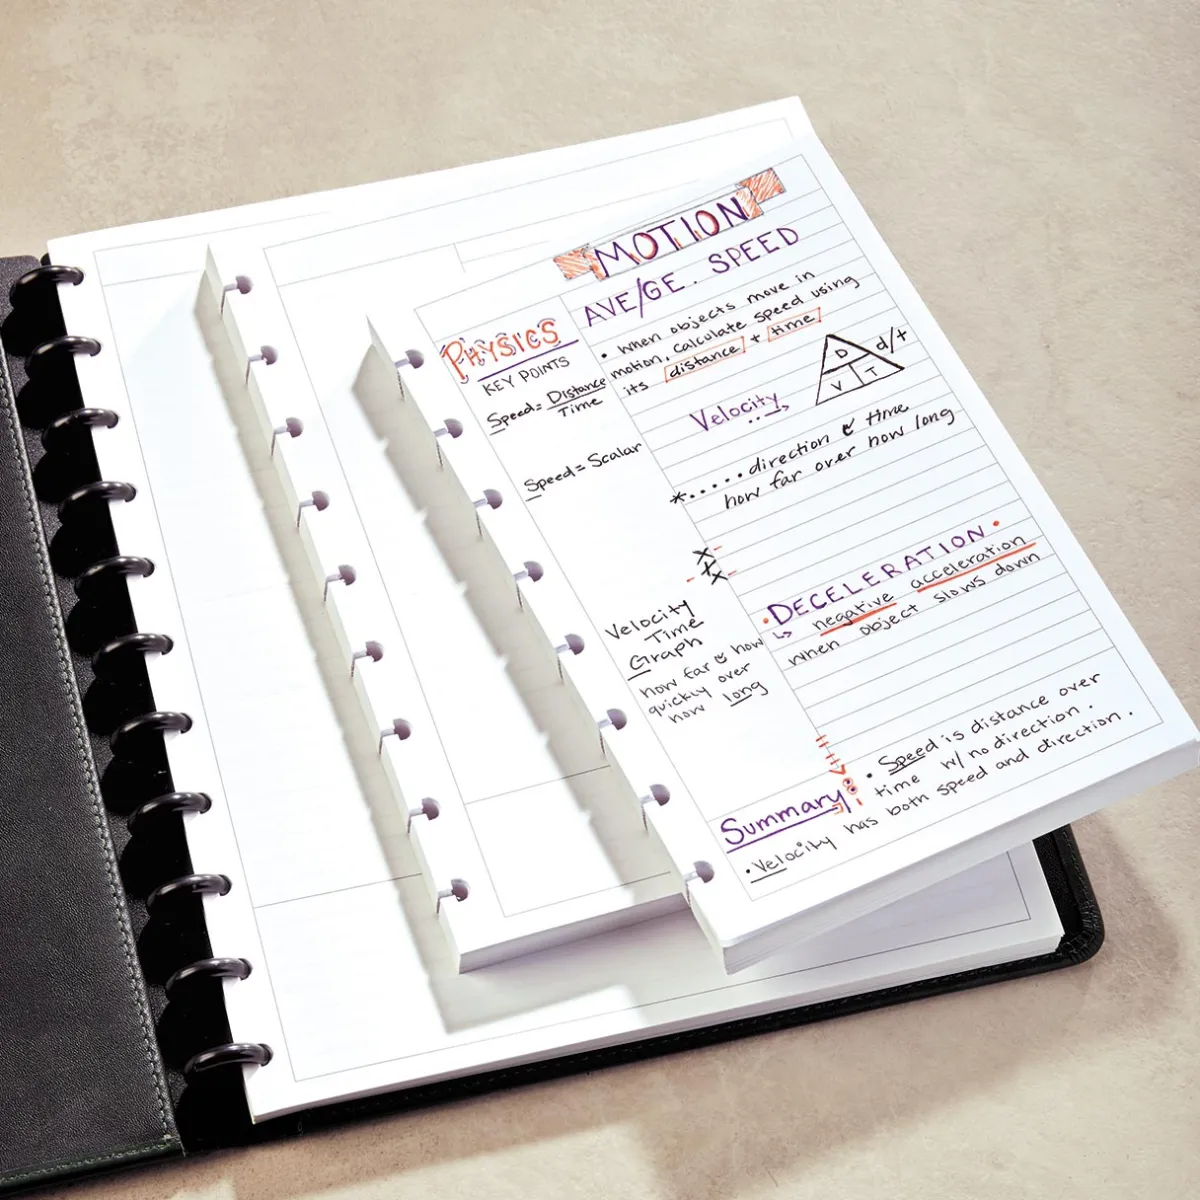 MOTION
AVE/GE. SPEED
• When objects move in
motion, calculate speed using
its distance + time
D
V T
d/t
Velocity
*.....direction & time
how far over how long
• DECELERATION •
negative acceleration
when object slows down
PHYSICS
KEY POINTS
Speed= Distance
Time
Speed= Scalar
Velocity
Time
Graph
how far & how
quickly over
how long
Summary:
• Speed is distance over
time w/ no direction.
• Velocity has both speed and direction.